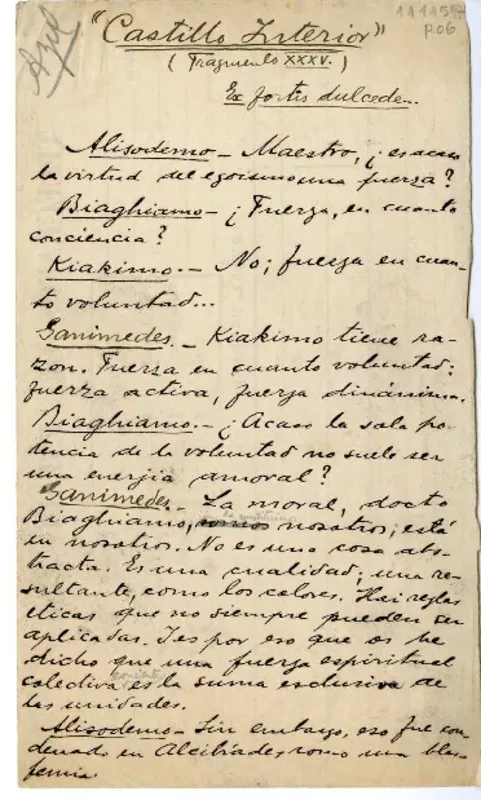 Azul
111159
p.06
"Castillo Interior"
(Fragmento XXXV.)
Ex fortis dulcede...
Alisodemo – Maestro, ¿es acaso
la virtud del egoismo una fuerza?
Biaghiamo – ¿Fuerza, en cuanto
conciencia?
Kiakimo. – No; fuerza en cuan-
to voluntad...
Ganimedes. – Kiakimo tiene ra-
zon. Fuerza en cuanto voluntad:
fuerza activa, fuerza dinámima.
Biaghiamo. – ¿Acaso la sola po-
tencia de la voluntad no suele ser
una energia amoral?
Ganimedes. – La moral, docto
Biaghiamo, somos nosotros; está
en nosotros. No es una cosa abs-
tracta. Es una cualidad; una re-
sultante, como los colores. Hai reglas
eticas que no siempre pueden ser
aplicadas. I es por eso que os he
dicho que una fuerza espiritual
colectiva es la suma esclusiva de
las unidades.
Alisodemo – Sin embargo, eso fue con-
denado en Alcibíades como una blas-
femia.